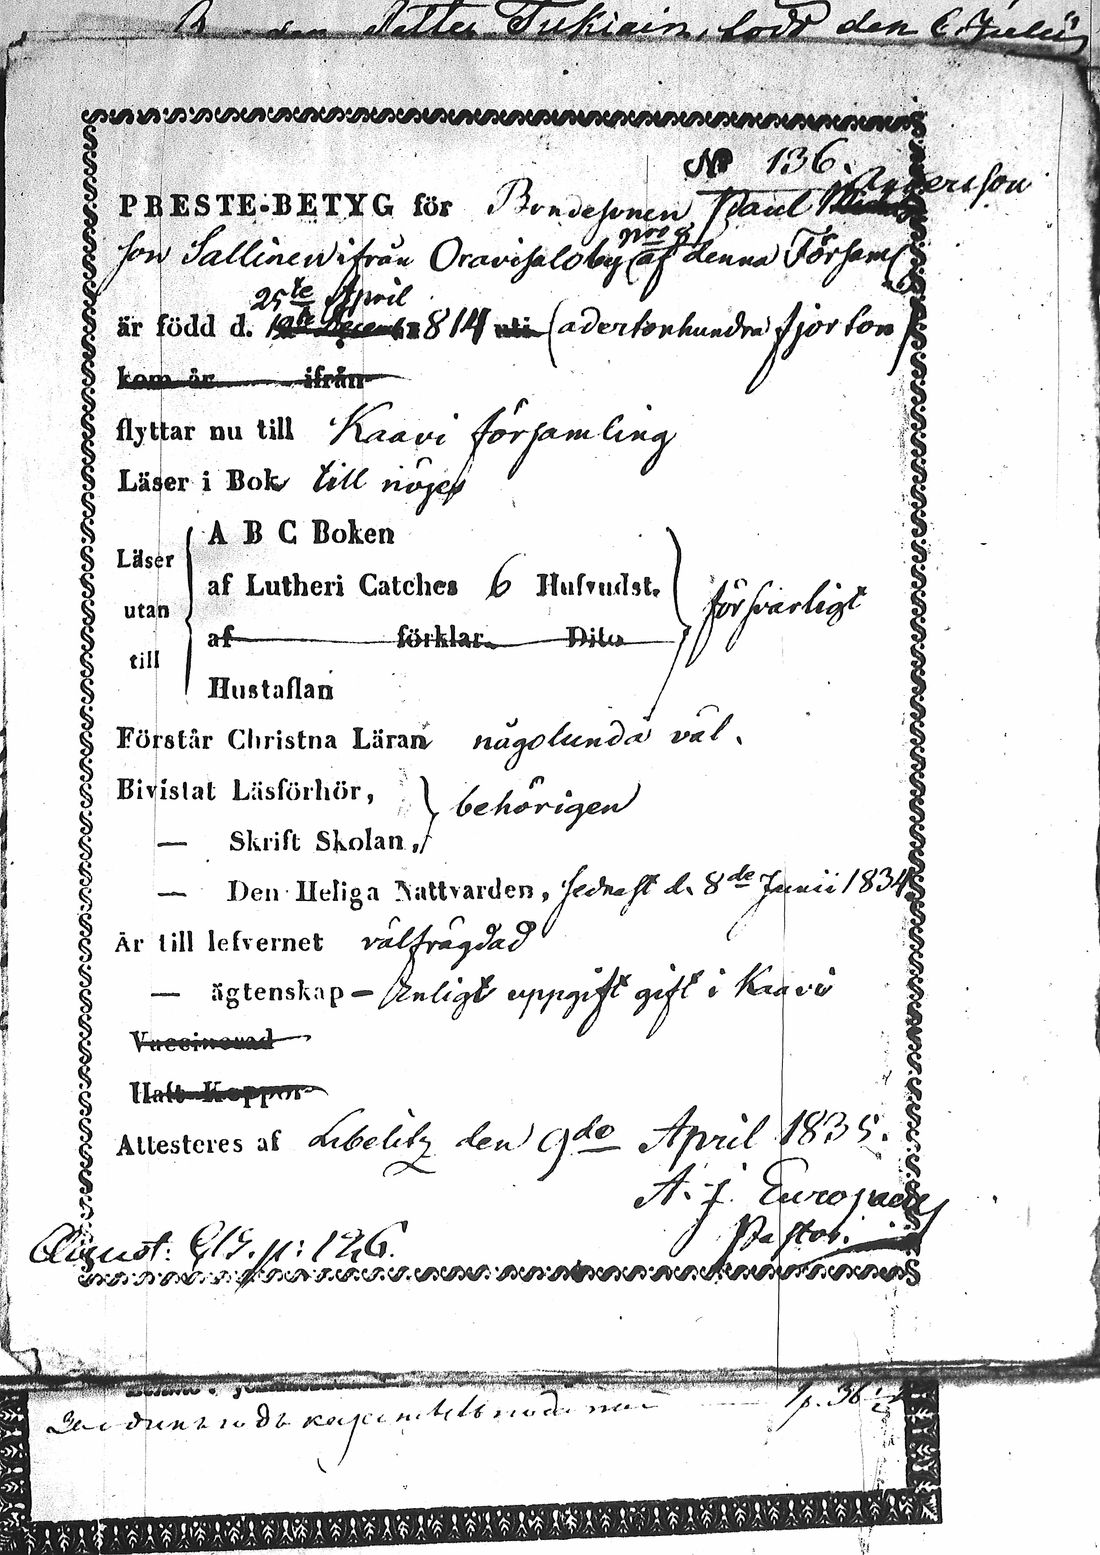 Petter Tukiain, född den 6 Julii
No 136.
Andersson
PRESTE-BETYG för Bondesonen Paul
son Sallinen ifrån Oravisaloby af denna Församl
25te April
är född d. 19de Decemb 1814 (adertonhundra fjorton)
kom år ifrån
flyttar nu till Kaavi församling
Läser i Bok till nöjes
Läser utan till
A B C Boken
af Lutheri Catches 6 Hufvudst. försvarligt
af förklar. Dito
Hustaflan
Förstår Christna Läran någolunda väl.
Bivistat Läsförhör, behörigen
— Skrift Skolan,
— Den Heliga Nattvarden, sednast d. 8de Junii 1834
Är till lefvernet välfrägdad
— ägtenskap – Enligt uppgift gift i Kaavi
Vaccinerad
Haft Koppor
Attesteres af Libelitz den 9de April 1835.
A. J. Europaeus
Pastor.
p: 126.